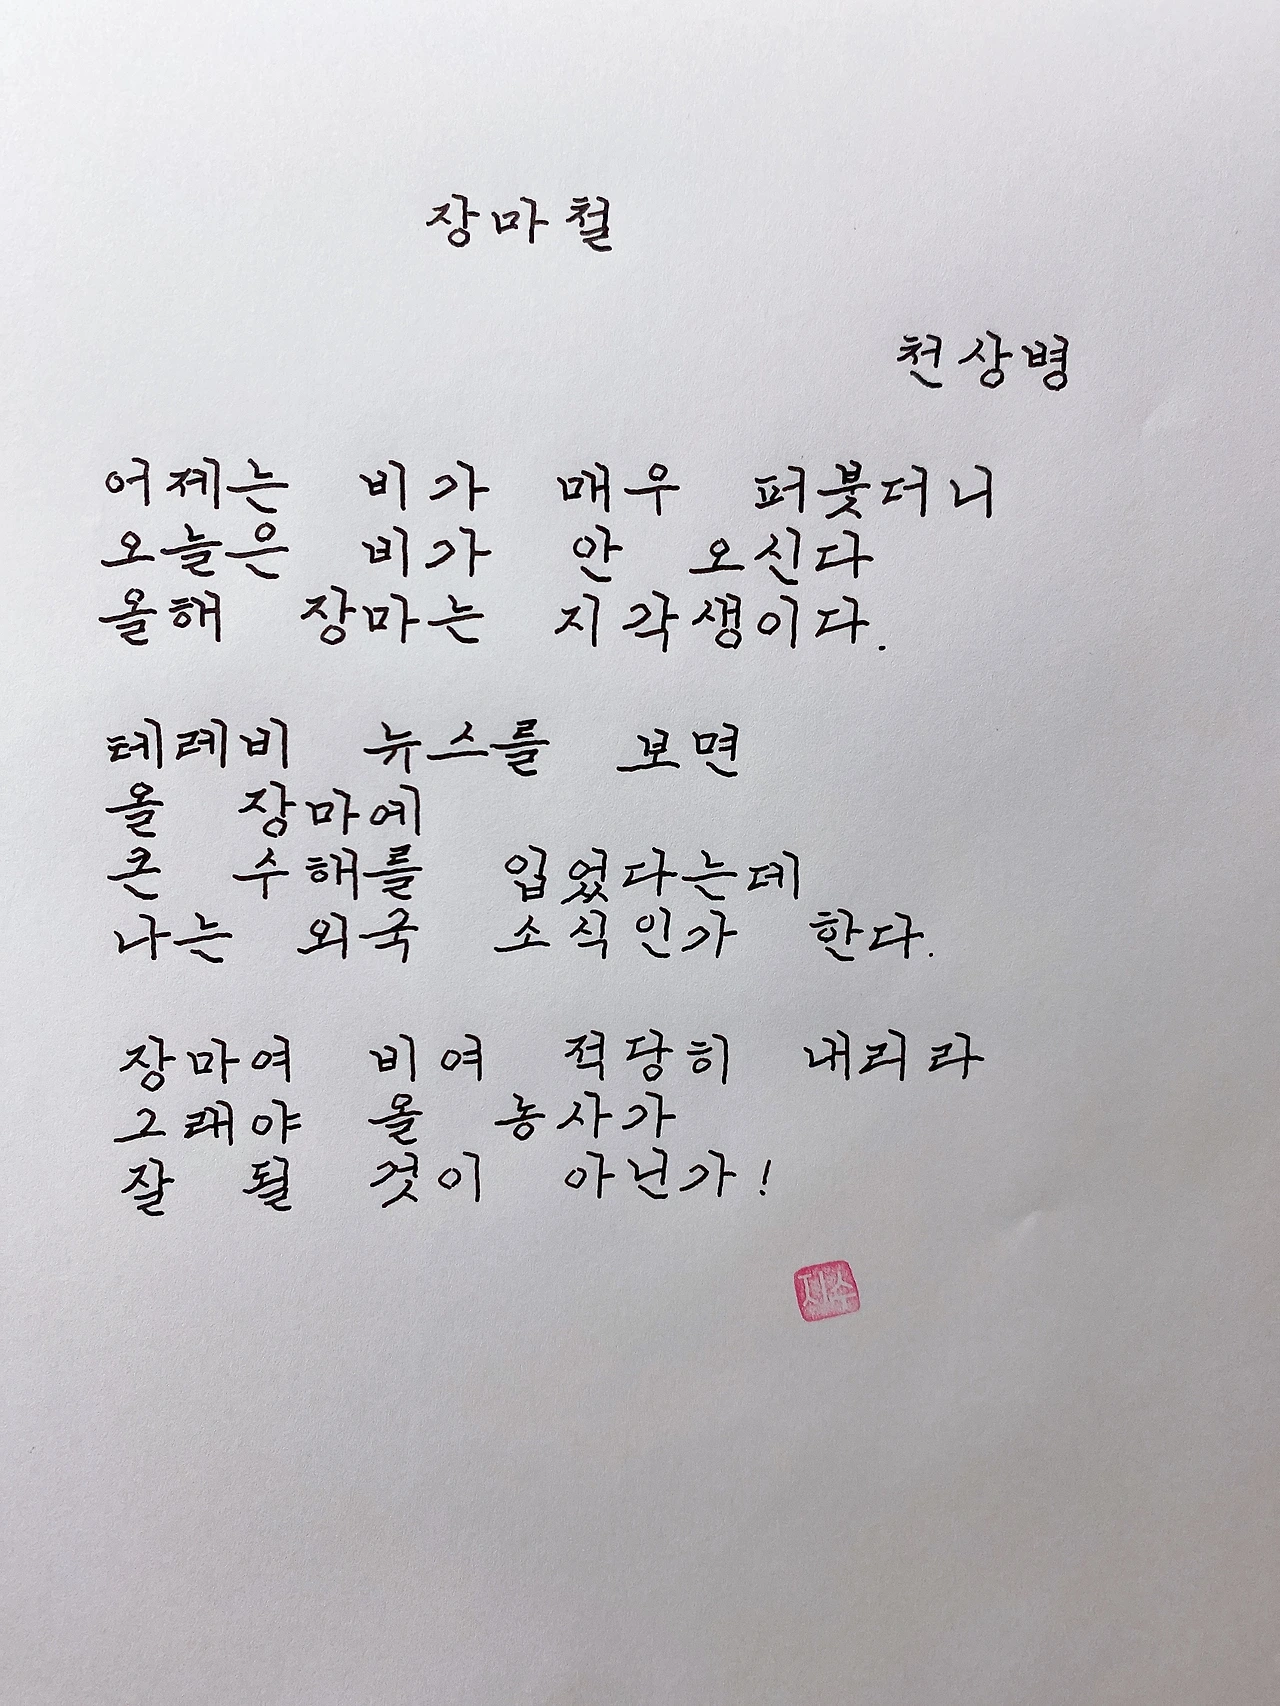 장마철
천상병
어제는 비가 매우 퍼붓더니
오늘은 비가 안 오신다
올해 장마는 지각생이다.
테레비 뉴스를 보면
올 장마에
큰 수해를 입었다는데
나는 외국 소식인가 한다.
장마여 비여 적당히 내리라
그래야 올 농사가
잘 될 것이 아닌가!
지수